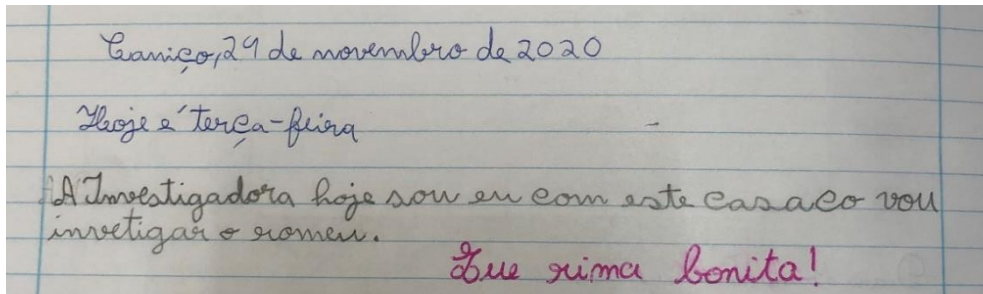 Caniço, 24 de novembro de 2020
Hoje é terça-feira
A Investigadora hoje sou eu com este casaco vou
invetigar o romeu.
Que rima bonita!